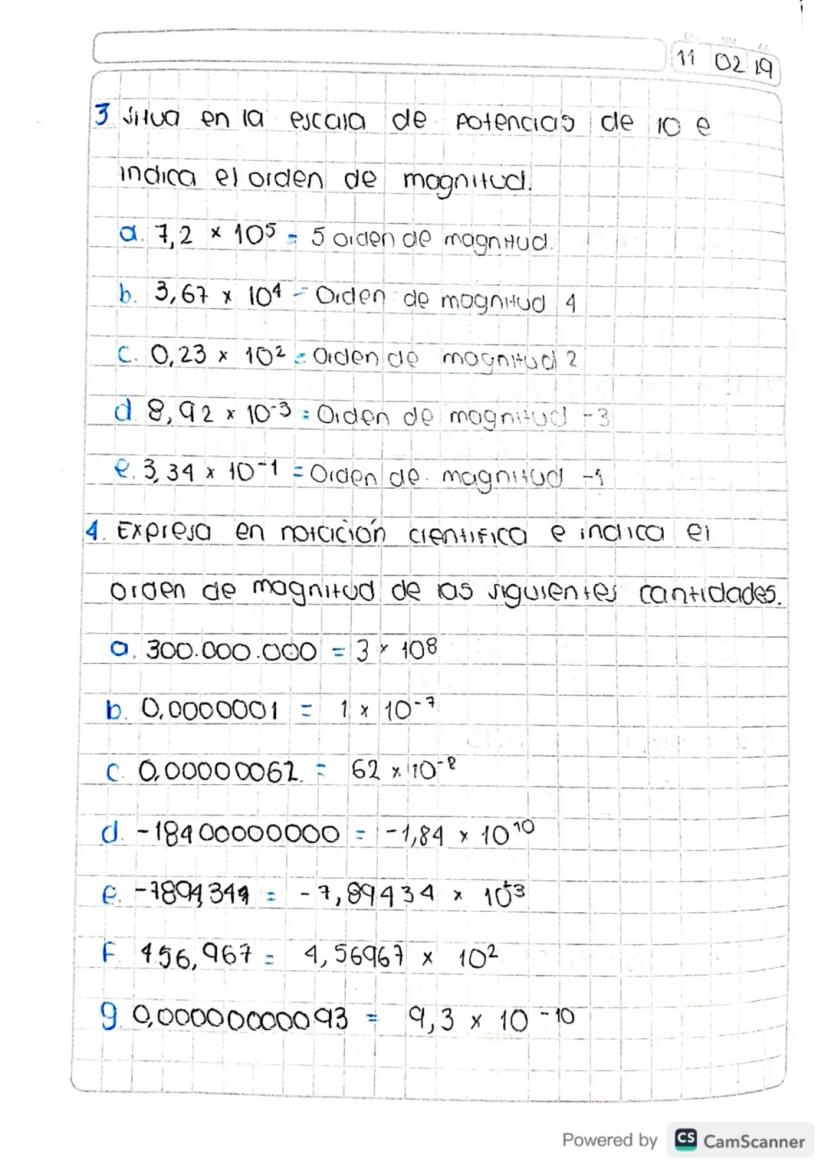 11 02 19
3 Situa en la escala de potencias de 10 e
indica el orden de magnitud.
a. 7,2 × 10⁵ = 5 orden de magnitud.
b. 3,67 × 10⁴ = Orden de magnitud 4
c. 0,23 × 10² = Orden de magnitud 2
d. 8,92 × 10⁻³ = Orden de magnitud -3
e. 3,34 × 10⁻¹ = Orden de magnitud -1
4. Expresa en notación científica e indica el
orden de magnitud de las siguientes cantidades.
a. 300.000.000 = 3 × 10⁸
b. 0,0000001 = 1 × 10⁻⁷
c. 0,00000062 = 62 × 10⁻⁸
d. -18400000000 = -1,84 × 10¹⁰
e. = -7,89434 ×
f. 456,967 = 4,56967 × 10²
g. 0,00000000093 = 9,3 × 10⁻¹⁰
Powered by CS CamScanner